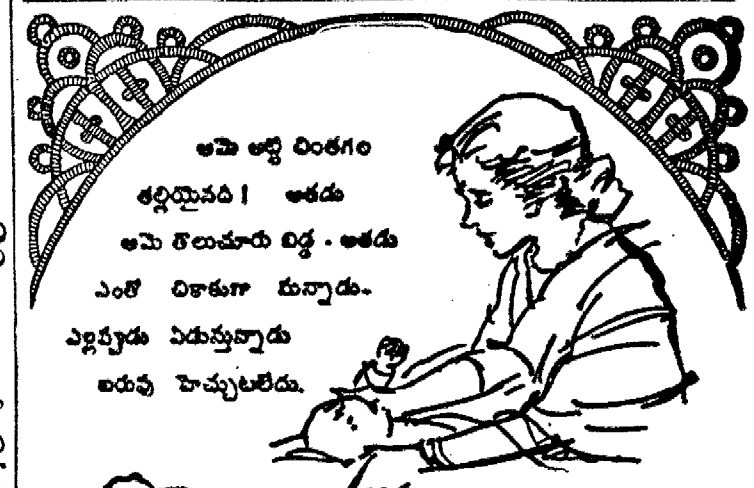 ఆమె అట్టి చింతగల
తల్లియైనది! అతడు
ఆమె తొలుచూరు బిడ్డ. అతడు
ఎంతో చికాకుగా నున్నాడు.
ఎల్లప్పుడు ఏడుస్తున్నాడు
బరువు హెచ్చుటలేదు.